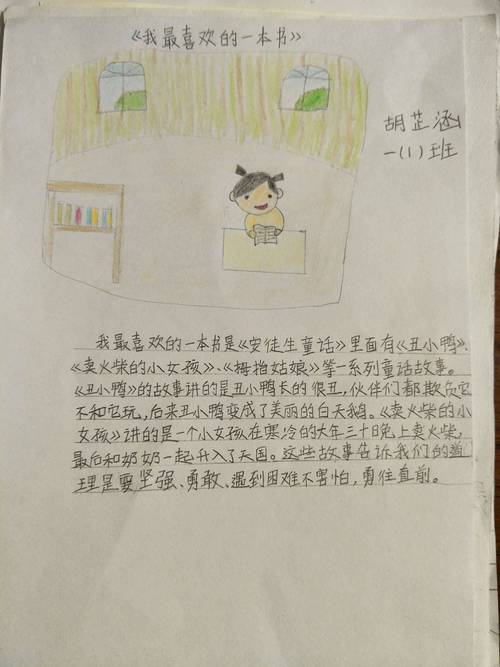 《我最喜欢的一本书》
胡芷涵
一(1)班
我最喜欢的一本书是《安徒生童话》里面有《丑小鸭》、
《卖火柴的小女孩》、《拇指姑娘》等一系列童话故事。
《丑小鸭》的故事讲的是丑小鸭长的很丑,伙伴们都欺负它
不和它玩,后来丑小鸭变成了美丽的白天鹅。《卖火柴的小
女孩》讲的是一个小女孩在寒冷的大年三十晚上卖火柴,
最后和奶奶一起升入了天国。这些故事告诉我们的道
理是要坚强、勇敢、遇到困难不害怕,勇往直前。